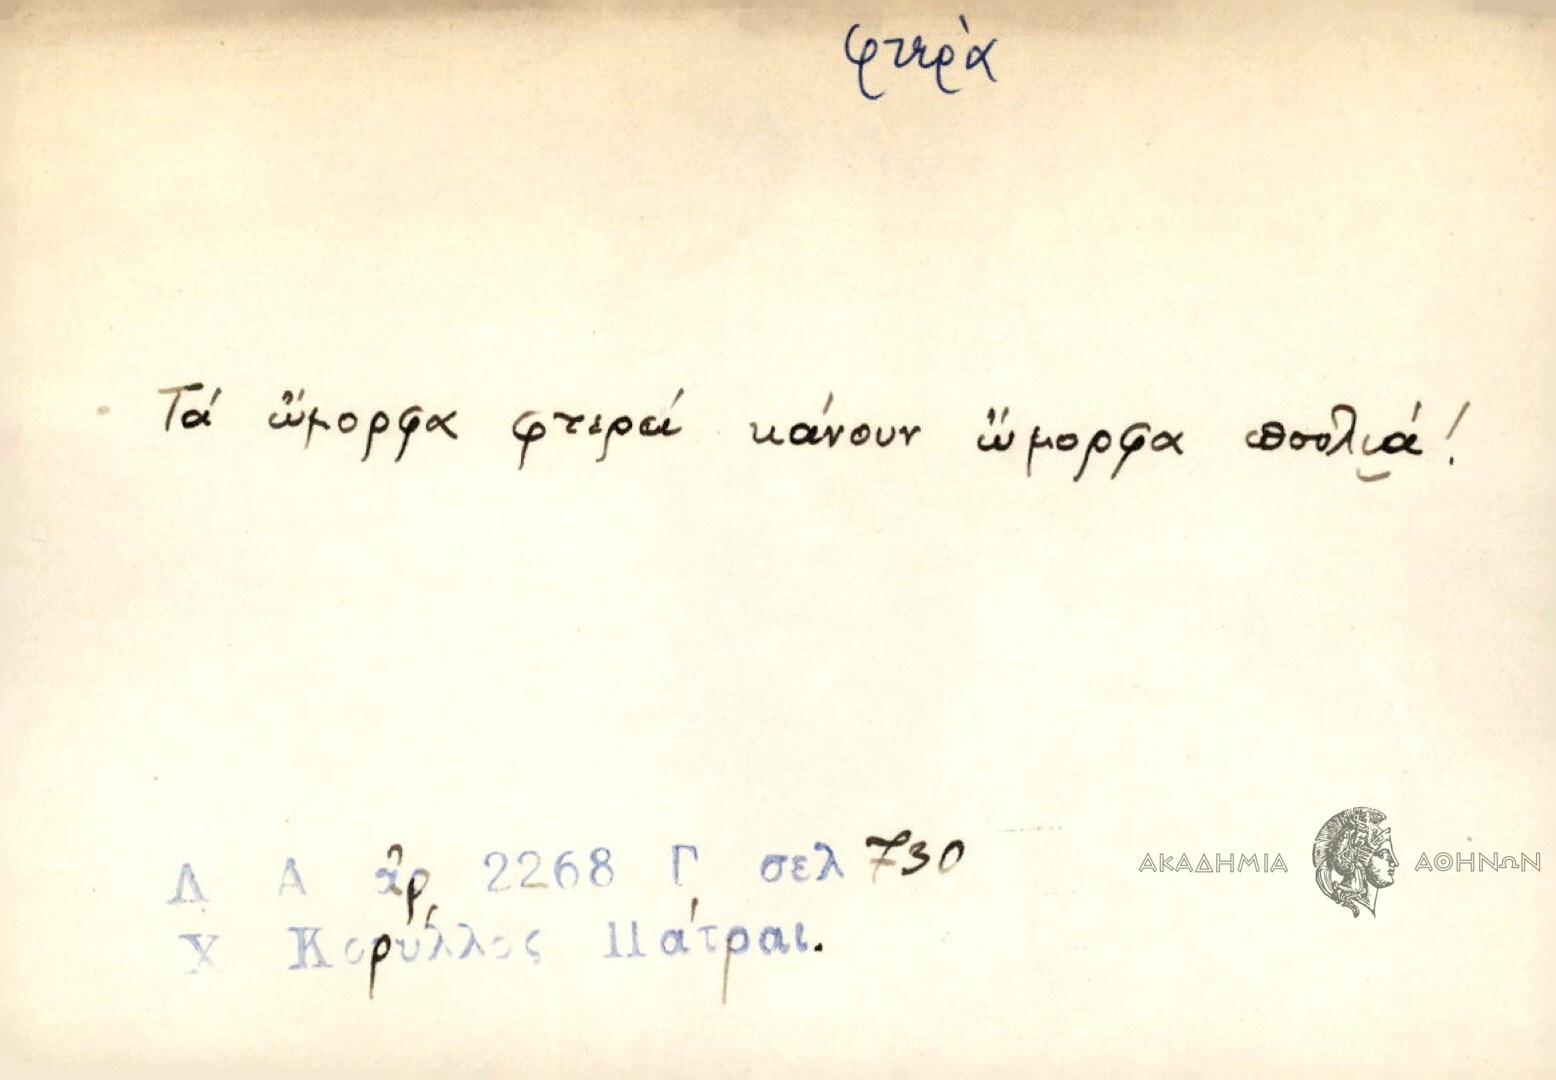 φτερὰ
Τά ὤμορφα φτερά κάνουν ὤμορφα πουλιά!
Λ Α ἀρ. 2268 Γ σελ 730
Χ Κορύλλος Πάτραι.
ΑΚΑΔΗΜΙΑ ΑΘΗΝΩΝ